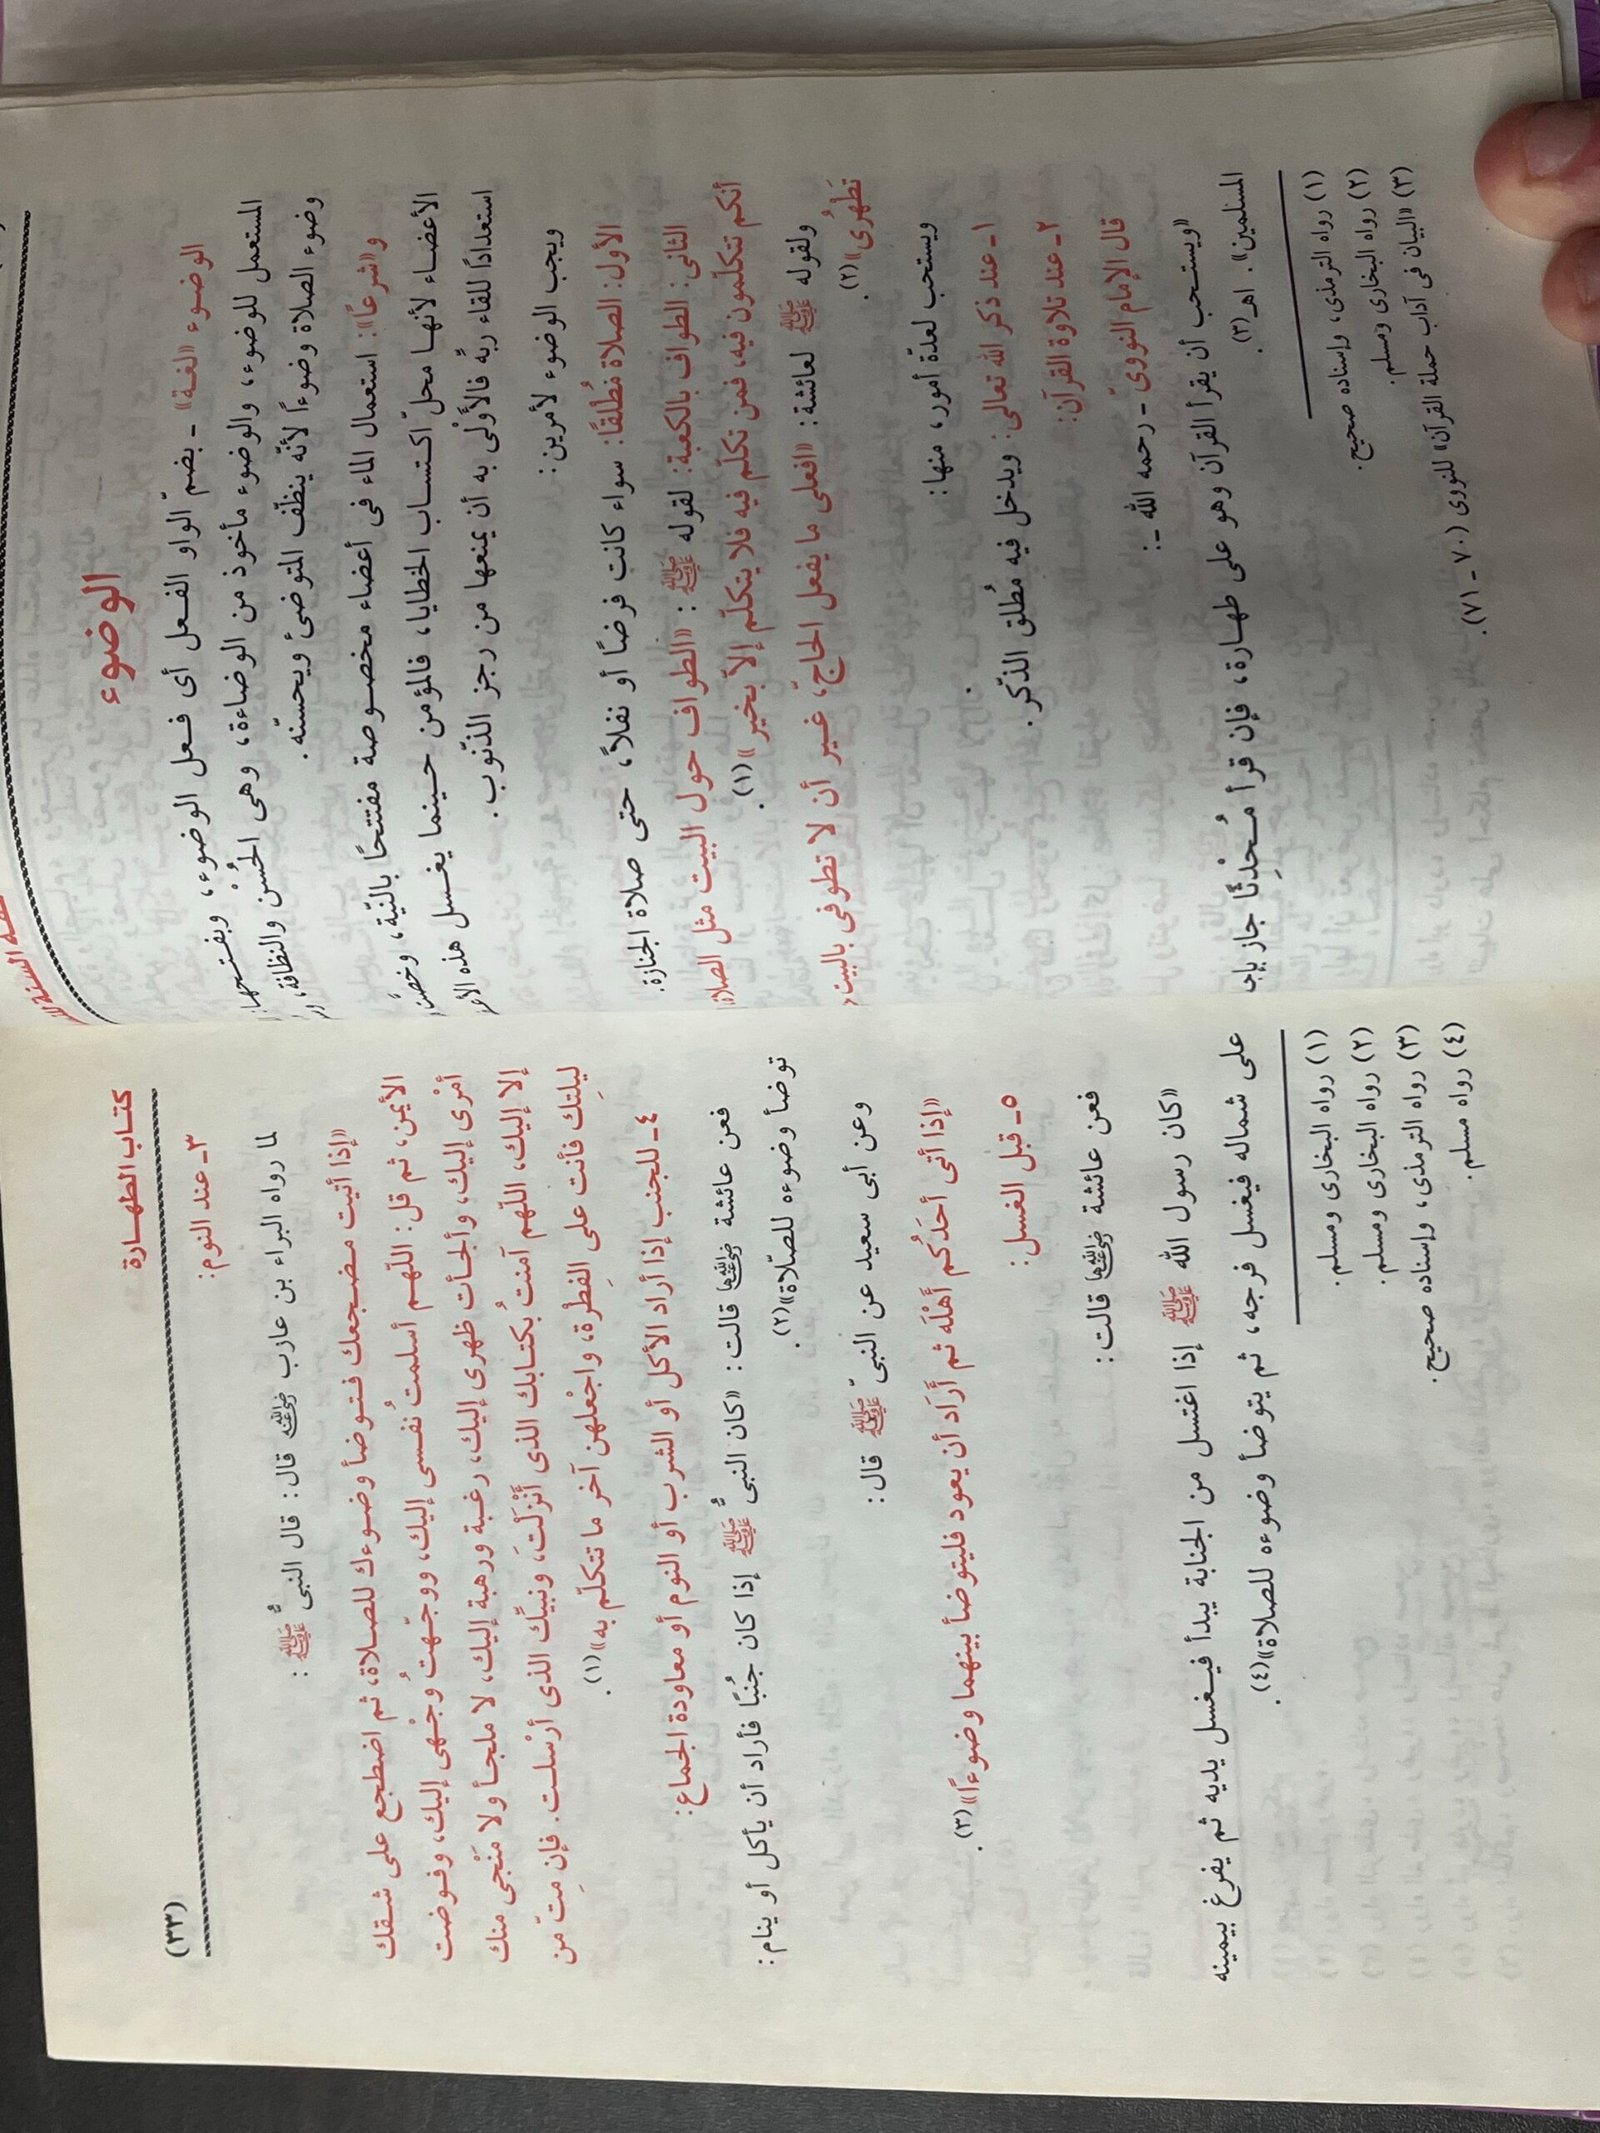 فقه السنة
الوضوء
الوضوء «لغة» - بضمّ الواو الفعل أى فعل الوضوء، وبفتحها:
المستعمل للوضوء، والوضوء مأخوذ من الوضاءة، وهى الحُسْن والنظافة،
وضوء الصلاة وضوءاً لأنّه ينظّف المتوضئ ويحسنّه.
و«شرعًا»: استعمال الماء فى أعضاء مخصوصة مفتتحًا بالنيّة، وخصّت
الأعضاء لأنها محلّ اكتساب الخطايا، فالمؤمن حينما يغسل هذه
استعدادًا للقاء ربِّه فالأَوْلى به أن يمنعها من رجز الذّنوب.
ويجب الوضوء لأمرين:
الأول: الصلاة مُطْلقًا: سواء كانت فرضًا أو نفلاً، حتى صلاة الجنازة.
الثانى: الطواف بالكعبة: لقوله ﷺ : «الطواف حول البيت مثل الصلاة
أنكم تتكلّمون فيه، فمن تكلّم فيه فلا يتكلّم إلاّ بخير»(١).
ولقوله ﷺ لعائشة: «افعلى ما يفعل الحاجّ، غير أن لا تطوفى بالبيت
تَطهُرى»(٢).
ويستحب لعدّة أمور، منها:
١- عند ذكر الله تعالى: ويدخل فيه مُطلق الذّكر.
٢- عند تلاوة القرآن:
قال الإمام النووىّ - رحمه الله -:
«ويستحب أن يقرأ القرآن وهو على طهارة، فإن قرأ مُحْدِثًا جاز
المسلمين». اهـ(٣).
(١) رواه الترمذى، وإسناده صحيح.
(٢) رواه البخارى ومسلم.
(٣) «البيان فى آداب حملة القرآن» للنووى (٧٠ - ٧١).
كتاب الطهارة
(٣٣)
٣- عند النوم:
لما رواه البراء بن عازب رضي الله عنه قال: قال النبىُّ ﷺ :
«إذا أتيت مضجعك فتوضأ وضوءك للصلاة، ثم اضطجع على شقك
الأيمن، ثم قل: اللّهم أسلمتُ نفسى إليك، ووجّهتُ وجْهى إليك، وفوضت
أمْرى إليك، وألجأت ظهرى إليك، رغبة ورهبة إليك، لا ملجأ ولا مَنْجى منك
إلا إليك، اللّهم آمنتُ بكتابك الذى أَنْزَلْتَ، ونبيِّك الذى أرْسلت. فإن مِتّ من
ليلتِك فأنت على الفِطْرة، واجْعلهن آخر ما تتكلّم به»(١).
٤- للجنب إذا أراد الأكل أو الشرب أو النوم أو معاودة الجماع:
فعن عائشة رضي الله عنها قالت: «كان النبىُّ ﷺ إذا كان جُنبًا فأراد أن يأكل أو ينام:
توضأ وضوءه للصّلاة»(٢).
وعن أبى سعيد عن النبىّ ﷺ قال:
«إذا أتى أحدَكُم أَهْلَه ثم أَرَاد أن يعود فليتوضأ بينهما وضوءاً»(٣).
٥- قبل الغسل:
فعن عائشة رضي الله عنها قالت:
«كان رسول الله ﷺ إذا اغتسل من الجنابة يبدأ فيغسل يديه ثم يفرغ بيمينه
على شماله فيغسل فرجه، ثم يتوضأ وضوءه للصلاة»(٤).
(١) رواه البخارى ومسلم.
(٢) رواه البخارى ومسلم.
(٣) رواه الترمذى، وإسناده صحيح.
(٤) رواه مسلم.